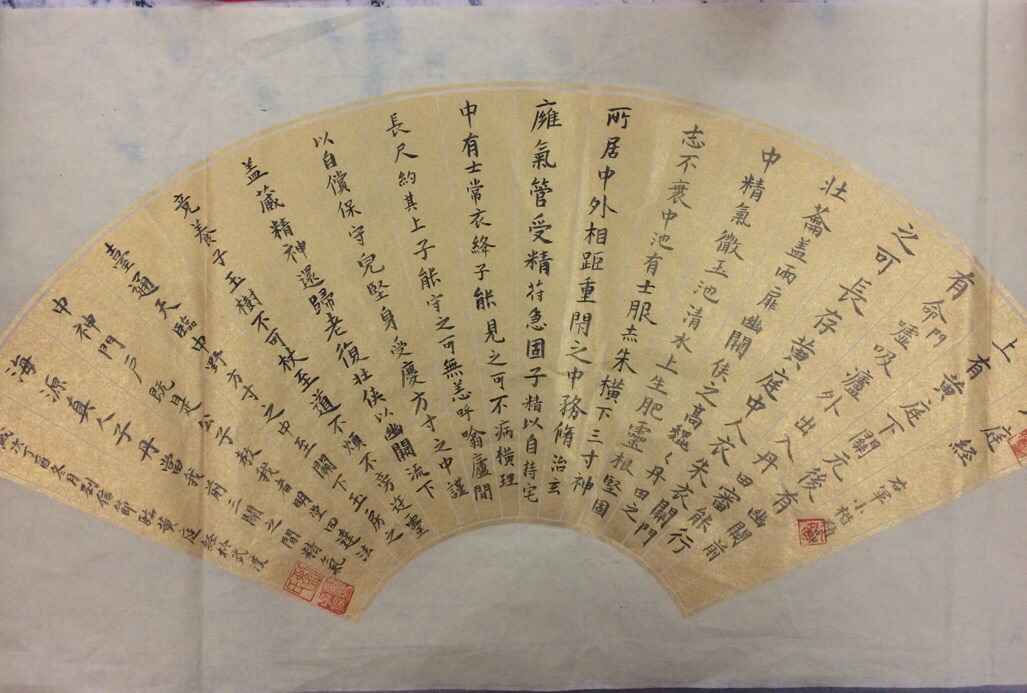 庭經
右軍小楷
上有黄庭下關元後有幽闕前
有命門嘘吸廬外出入丹田審能行
之可長存黄庭中人衣朱衣關門
壯籥蓋兩扉幽闕俠之高魏〻丹田之
中精氣微玉池清水上生肥靈根堅
志不衰中池有士服赤朱横下三寸神
所居中外相距重閉之中務脩治玄
廱氣管受精苻急固子精以自持宅
中有士常衣絳子能見之可不病横理
長尺約其上子能守之可無恙呼噏廬間
以自償保守完堅身受慶方寸之中謹
盖藏精神還歸老復壯俠以幽闕流下
竟養子玉樹不可杖至道不煩不旁迕靈
臺通天臨中野方寸之中至關下玉房之
中神門户既是公子教我者明堂四達法
海源真人子丹當我前三關之間精氣
歲次丁酉六月劉信節臨黄庭經於武漢